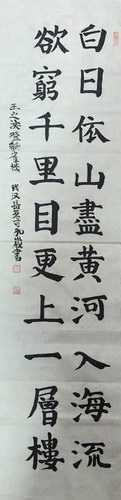 白日依山盡黃河入海流
欲窮千里目更上一層樓
王之渙登鸛雀樓